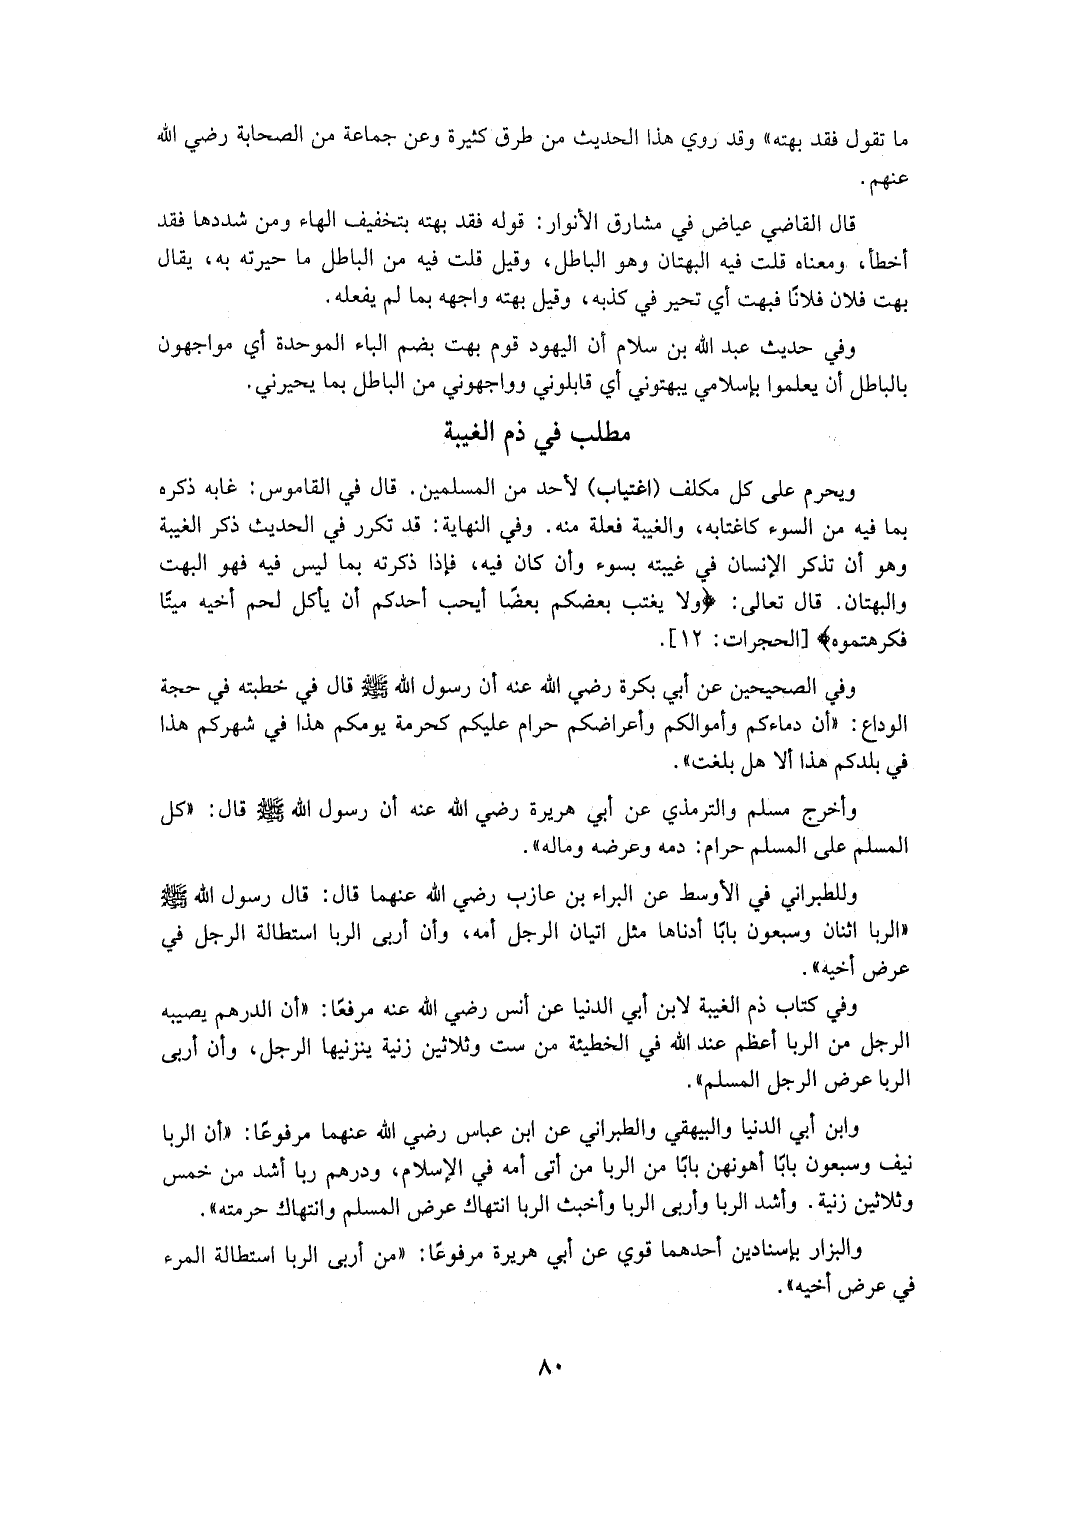 ما تقول فقد بهته» وقد روي هذا الحديث من طرق كثيرة وعن جماعة من الصحابة رضي الله
عنهم.
قال القاضي عياض في مشارق الأنوار: قوله فقد بهته بتخفيف الهاء ومن شددها فقد
أخطأ، ومعناه قلت فيه البهتان وهو الباطل، وقيل قلت فيه من الباطل ما حيرته به، يقال
بهت فلان فلانًا فبهت أي تحير في كذبه، وقيل بهته واجهه بما لم يفعله.
وفي حديث عبد الله بن سلام أن اليهود قوم بهت بضم الباء الموحدة أي مواجهون
بالباطل أن يعلموا بإسلامي يبهتوني أي قابلوني وواجهوني من الباطل بما يحيرني.
مطلب في ذم الغيبة
ويحرم على كل مكلف (اغتياب) لأحد من المسلمين. قال في القاموس: غابه ذكره
بما فيه من السوء كاغتابه، والغيبة فعلة منه. وفي النهاية: قد تكرر في الحديث ذكر الغيبة
وهو أن تذكر الإنسان في غيبته بسوء وأن كان فيه، فإذا ذكرته بما ليس فيه فهو البهت
والبهتان. قال تعالى: ﴿ولا يغتب بعضكم بعضًا أيحب أحدكم أن يأكل لحم أخيه ميتًا
فكرهتموه﴾ [الحجرات: ١٢].
وفي الصحيحين عن أبي بكرة رضي الله عنه أن رسول الله ﷺ قال في خطبته في حجة
الوداع: «أن دماءكم وأموالكم وأعراضكم حرام عليكم كحرمة يومكم هذا في شهركم هذا
في بلدكم هذا ألا هل بلغت».
وأخرج مسلم والترمذي عن أبي هريرة رضي الله عنه أن رسول الله ﷺ قال: «كل
المسلم على المسلم حرام: دمه وعرضه وماله».
وللطبراني في الأوسط عن البراء بن عازب رضي الله عنهما قال: قال رسول الله ﷺ
«الربا اثنان وسبعون بابًا أدناها مثل اتيان الرجل أمه، وأن أربى الربا استطالة الرجل في
عرض أخيه».
وفي كتاب ذم الغيبة لابن أبي الدنيا عن أنس رضي الله عنه مرفعًا: «أن الدرهم يصيبه
الرجل من الربا أعظم عند الله في الخطيئة من ست وثلاثين زنية ينزنيها الرجل، وأن أربى
الربا عرض الرجل المسلم».
وابن أبي الدنيا والبيهقي والطبراني عن ابن عباس رضي الله عنهما مرفوعًا: «أن الربا
نيف وسبعون بابًا أهونهن بابًا من الربا من أتى أمه في الإسلام، ودرهم ربا أشد من خمس
وثلاثين زنية. وأشد الربا وأربى الربا وأخبث الربا انتهاك عرض المسلم وانتهاك حرمته».
والبزار بإسنادين أحدهما قوي عن أبي هريرة مرفوعًا: «من أربى الربا استطالة المرء
في عرض أخيه».
٨٠